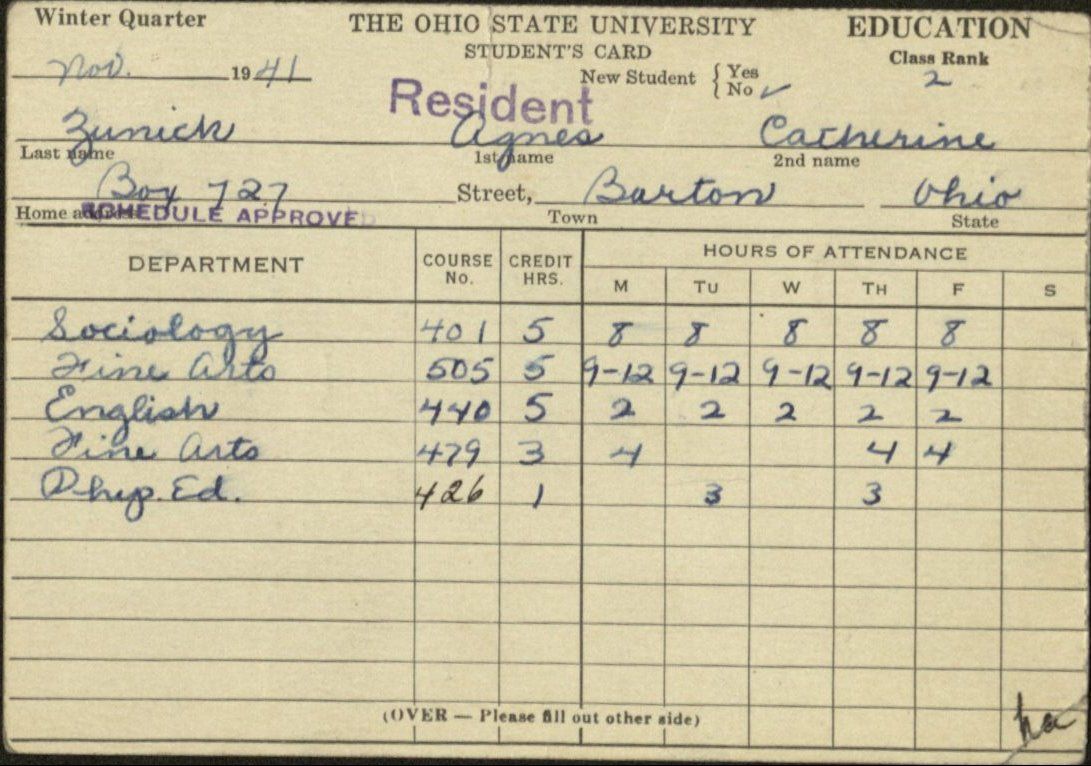 Winter Quarter THE OHIO STATE UNIVERSITY EDUCATION
STUDENT'S CARD Class Rank
Nov. 1941 New Student { Yes No ✓ 2
Resident
Zunich Agnes Catherine
Last name 1st name 2nd name
Box 727 Street, Barton Ohio
Home address Town State
SCHEDULE APPROVED
DEPARTMENT COURSE No. CREDIT HRS. HOURS OF ATTENDANCE
M TU W TH F S
Sociology 401 5 8 8 8 8 8
Fine Arts 505 5 9-12 9-12 9-12 9-12 9-12
English 440 5 2 2 2 2 2
Fine Arts 479 3 4 4 4
Phys. Ed. 426 1 3 3
(OVER — Please fill out other side)